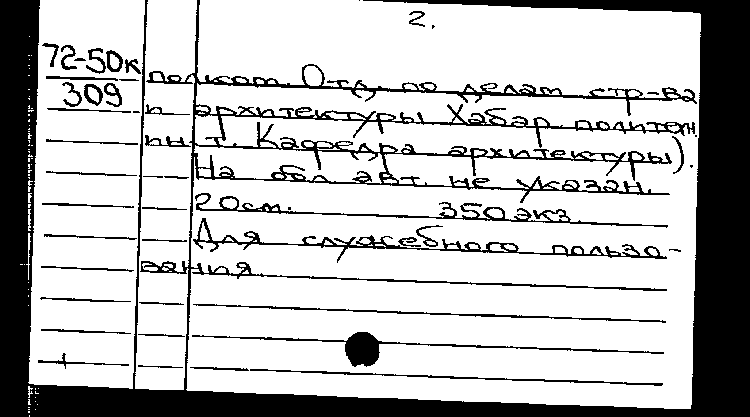 2.
72-50к
309
полком. Отд. по делам стр-ва
и архитектуры Хабар политехн.
ин-т. Кафедра архитектуры).
На обл авт. не указан.
20см. 350 экз.
Для служебного пользо-
вания